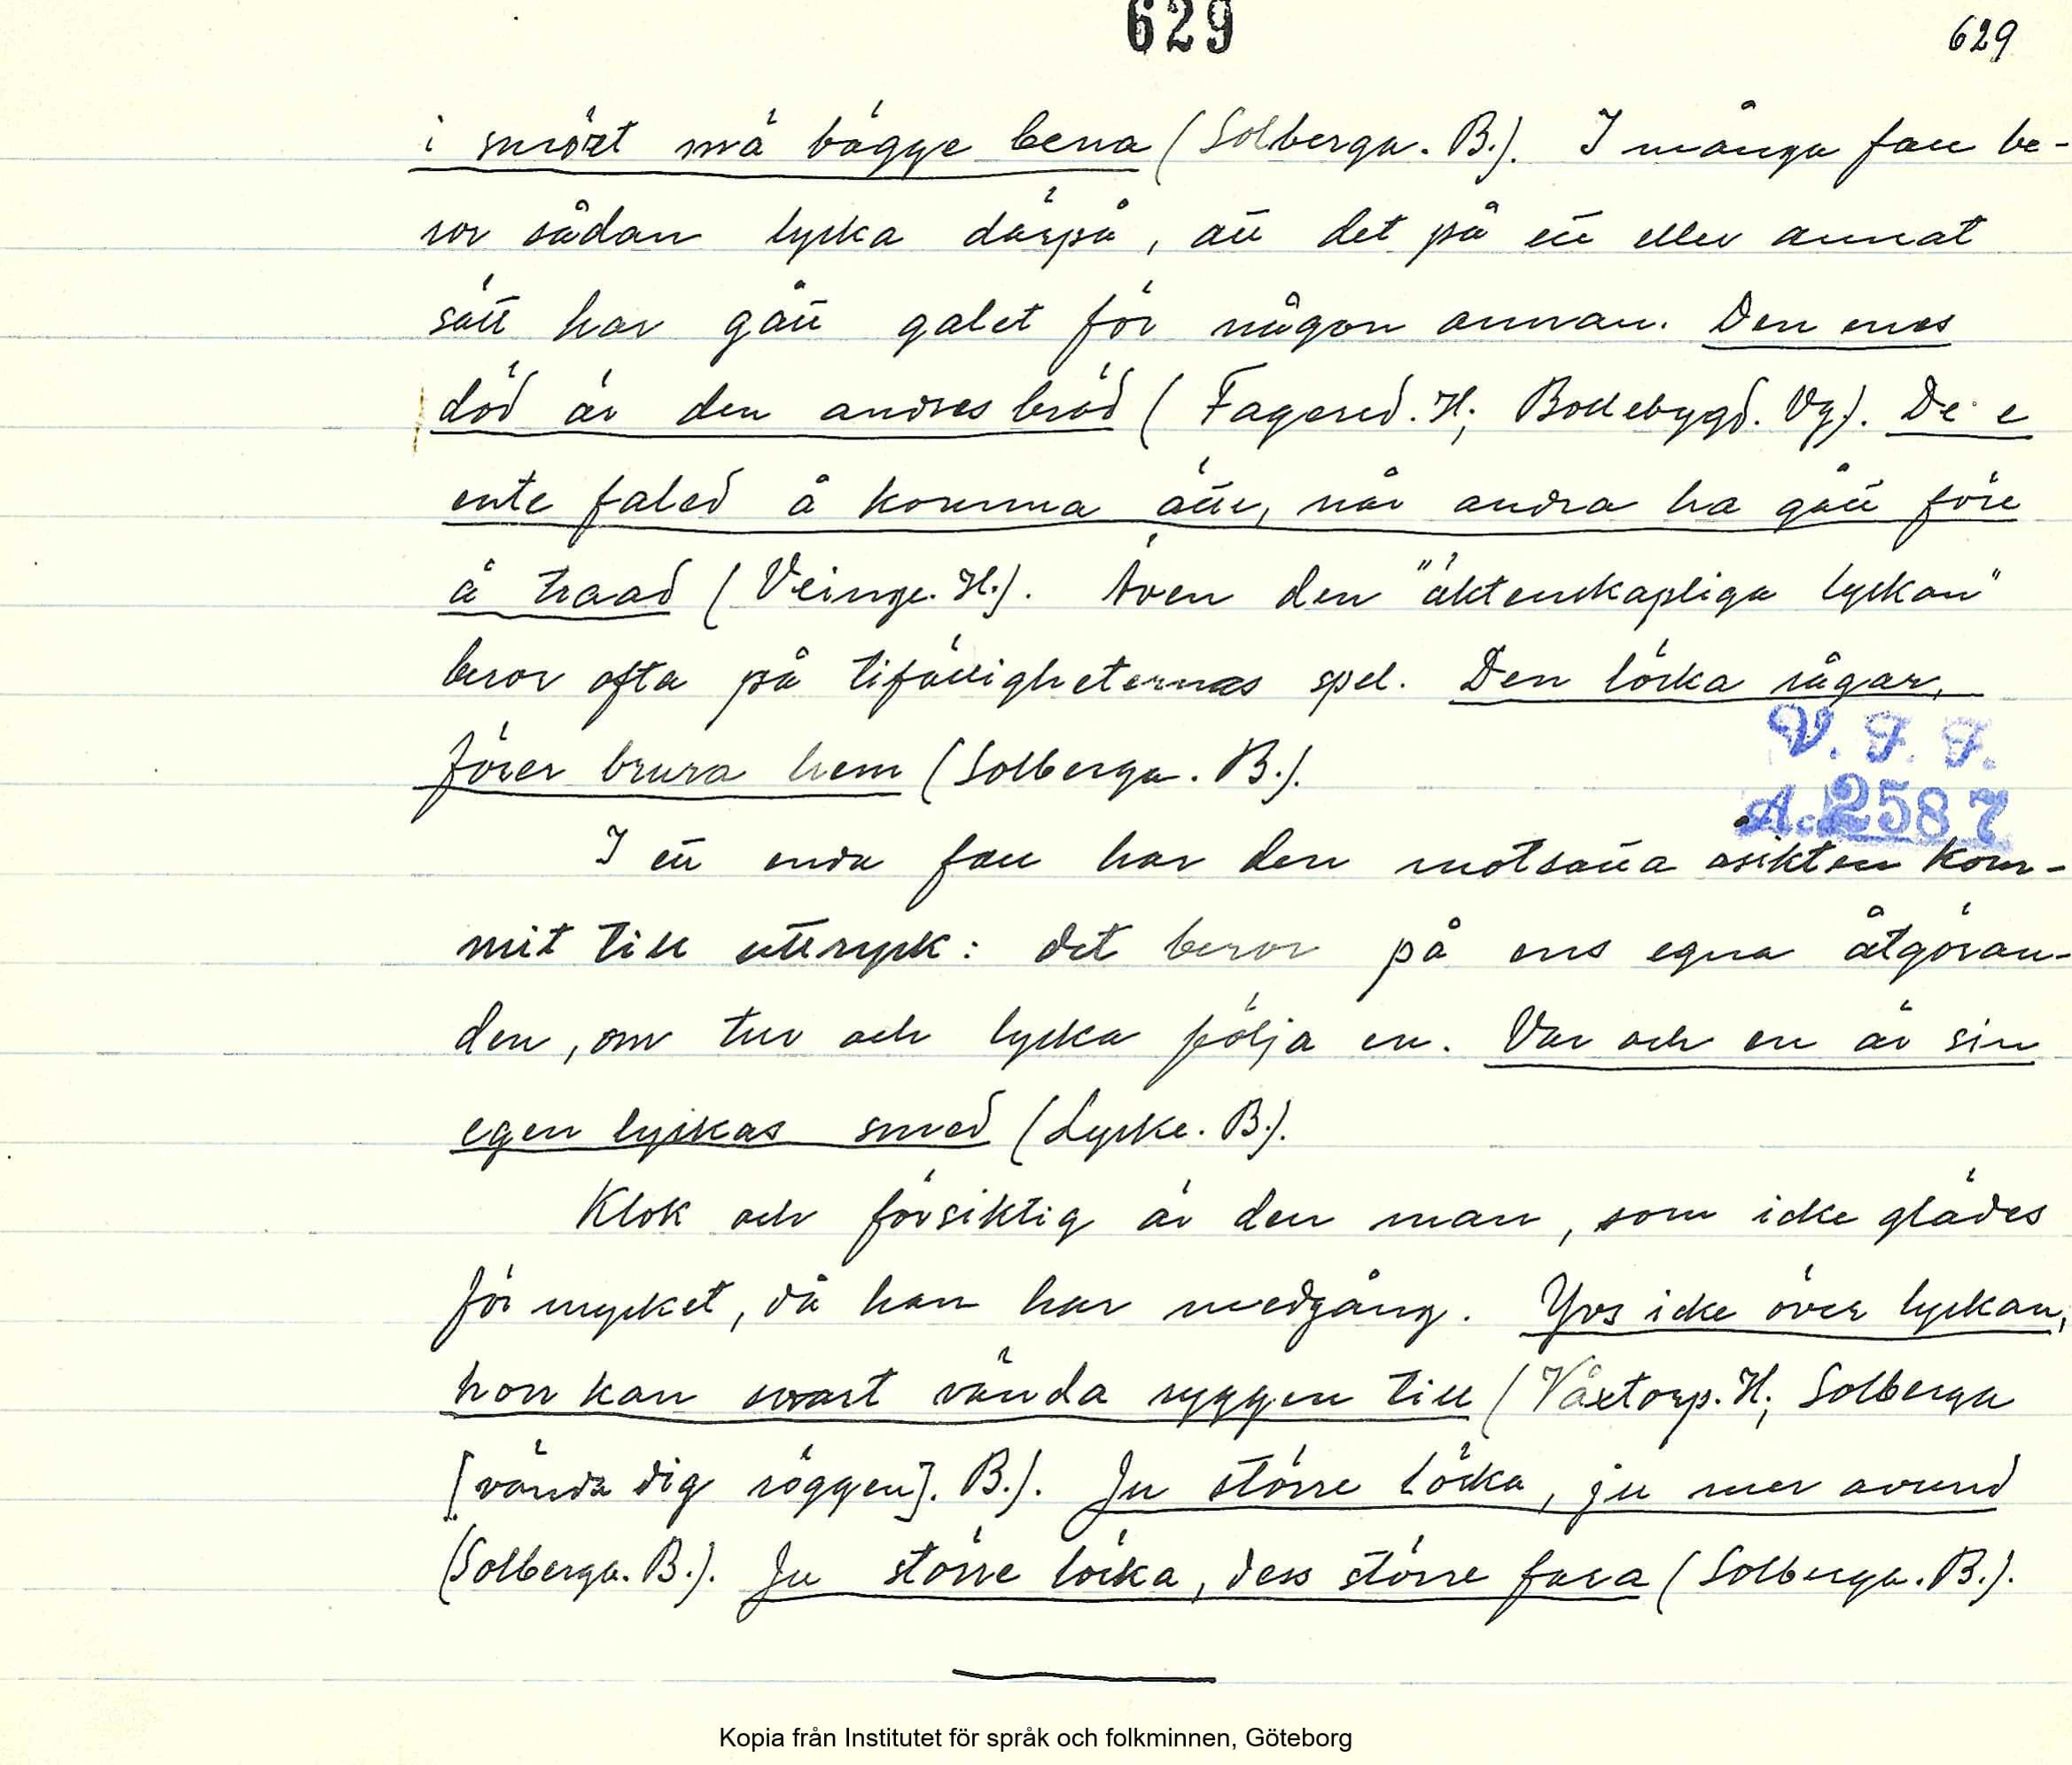 629
629
i smöret mä bägge bena (Solberga. B.). I många fall be-
ror sådan lycka därpå, att det på ett eller annat
sätt har gått galet för någon annan. Den enes
död är den andres bröd (Fagered. H; Bollebygd. Vg). De e
ente faled å komma ätte, når andra ha gått före
å traad (Veinge. H.). Även den "äktenskapliga lyckan"
beror ofta på tifälligheternas spel. Den löcka rågar,
förer brura hem (Solberga. B.).
V. F. F.
Acc 2587
I ett enda fall har den motsatta åsikten kom-
mit till uttryck: det beror på ens egna åtgöran-
den, om tur och lycka följa en. Var och en är sin
egen lyckas smed (Lycke. B.).
Klok och försiktig är den man, som icke glädes
för mycket, då han har medgång. Yvs icke över lyckan,
hon kan snart vända ryggen till (Våxtorp. H; Solberga
[vända dig röggen]. B.). Ju större löcka, ju mer avund
(Solberga. B.). Ju större löcka, dess större fara (Solberga. B.).
Kopia från Institutet för språk och folkminnen, Göteborg